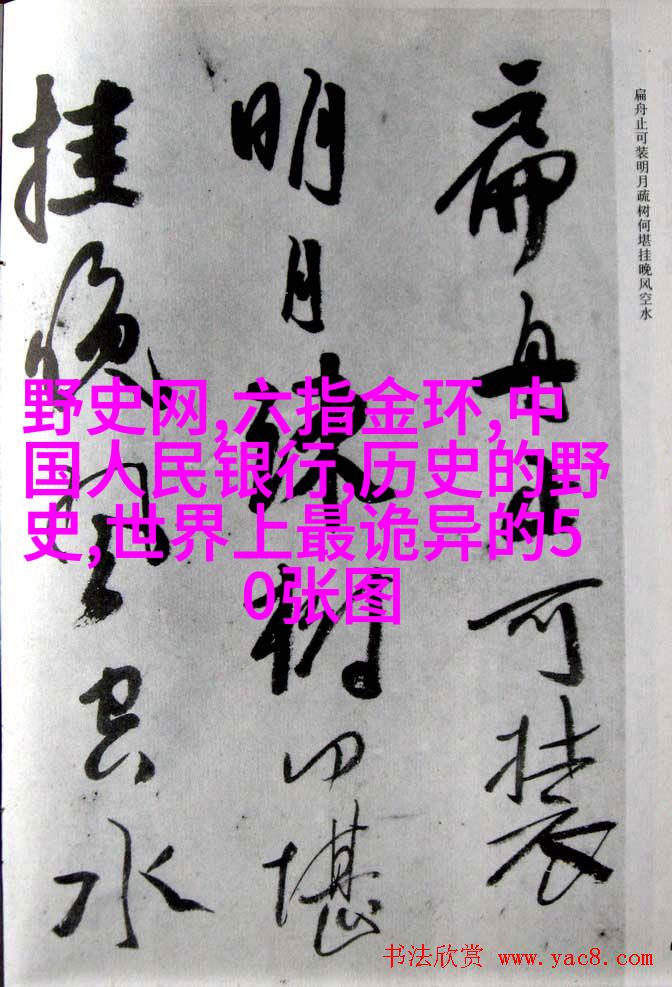 扁舟止可装
明月疏树何堪
挂晚风空水
扁舟止可装明月疏树何堪挂晚风空水
野史网,六指金环,中
国人民银行,历史的野
史,世界上最诡异的5
0张图
书法欣赏 www.yac8.com